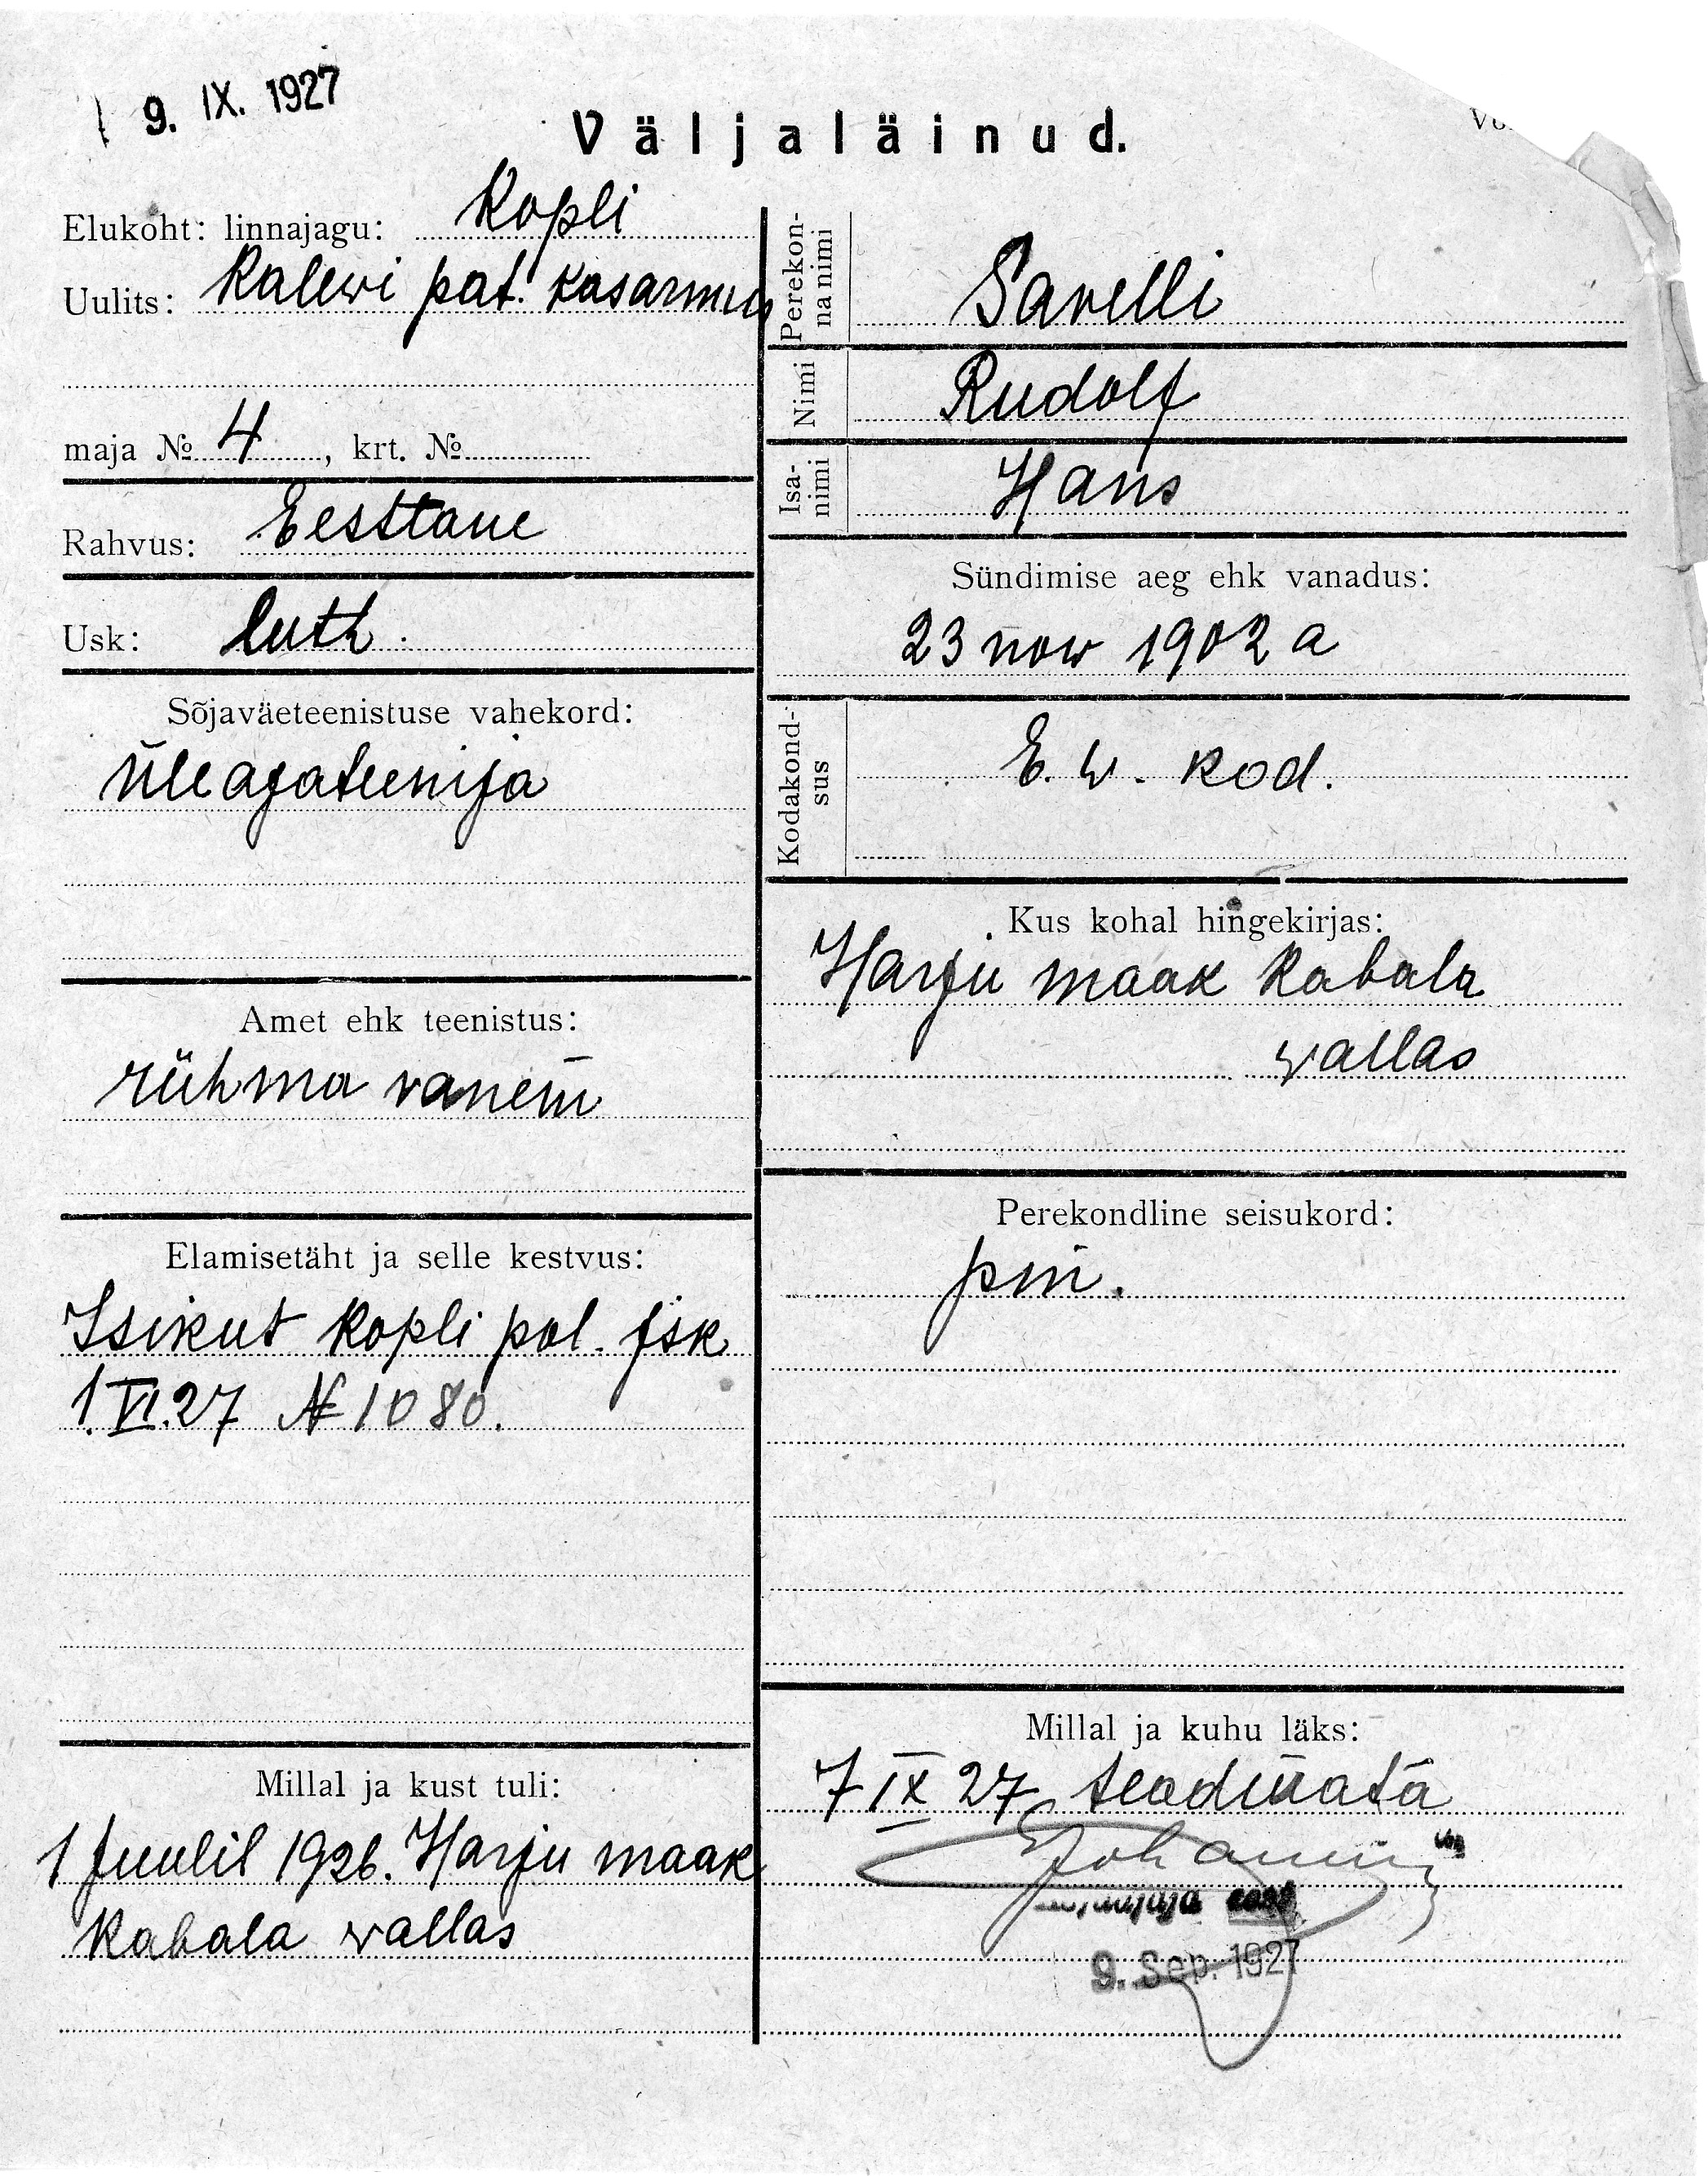 9. IX. 1927
Väljaläinud.
Elukoht: linnajagu: Kopli
Uulits: Kalewi pat. kasarmus
maja № 4, krt. №
Rahvus: Eesttane
Usk: luth.
Sõjaväeteenistuse vahekord:
üleajateenija
Amet ehk teenistus:
rühma vanem
Elamisetäht ja selle kestvus:
Isikut Kopli pol. jsk
1.VI.27 № 1080.
Millal ja kust tuli:
1 Juulil 1926. Harju maak
Kabala vallas
Perekon-
na nimi
Savelli
Nimi
Rudolf
Isa-
nimi
Hans
Sündimise aeg ehk vanadus:
23 now 1902 a
Kodakond-
sus
E. W. kod.
Kus kohal hingekirjas:
Harju maak Kabala
vallas
Perekondline seisukord:
Millal ja kuhu läks:
7 IX 27 teadmata
9. Sep. 1927